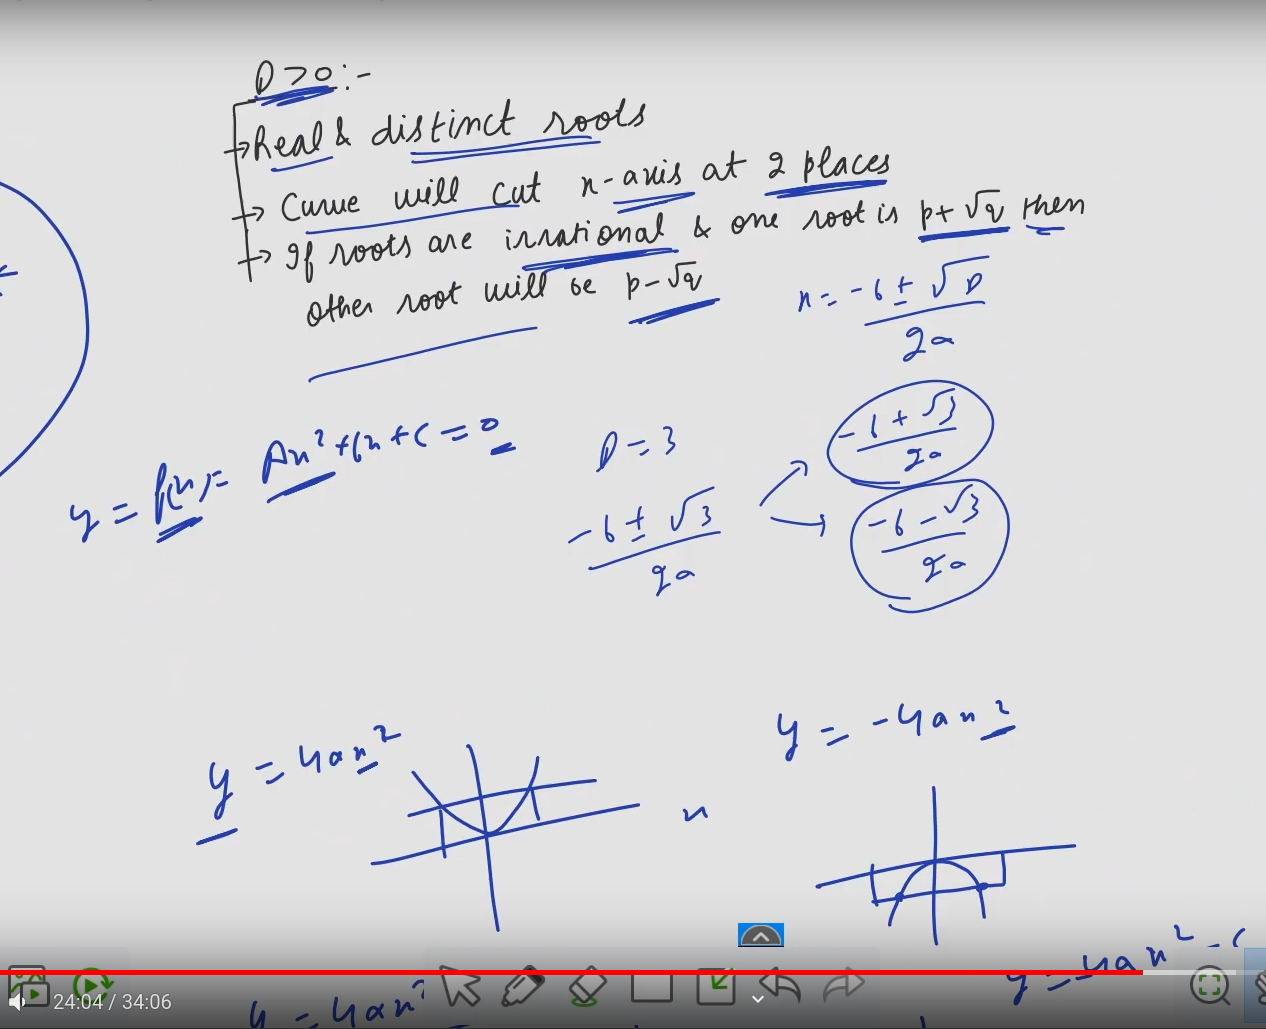 D>0:-
→ Real & distinct roots
→ Curve will cut x-axis at 2 places
→ If roots are irrational & one root is p+√q then
other root will be p-√q
x = -b ± √D
2a
y = f(x) = Ax²+bx+c = 0
D = 3
-b ± √3
2a
-b + √3
2a
-b - √3
2a
y = 4ax²
x
y = -4ax²
y = 4ax² - c
24:04 / 34:06
y = 4ax²